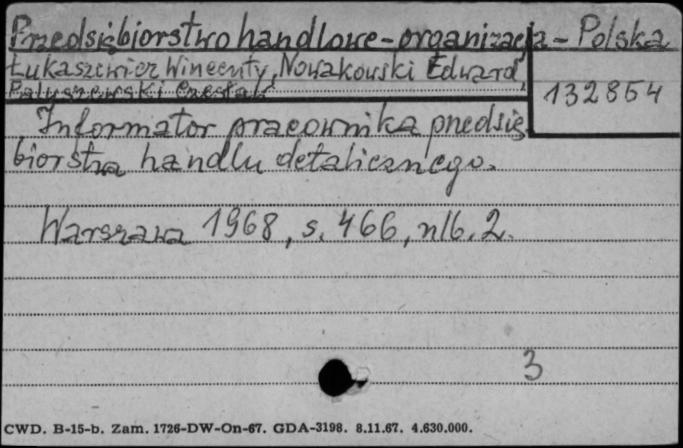 Przedsiębiorstwo handlowe - organizacja - Polska
Łukaszewicz Wincenty, Nowakowski Edward,
Paluszewski Czesław
132854
Informator pracownika przedsię
biorstwa handlu detalicznego.
Warszawa 1968, s. 466, nlb. 2.
3
CWD. B-15-b. Zam. 1726-DW-On-67. GDA-3198. 8.11.67. 4.630.000.